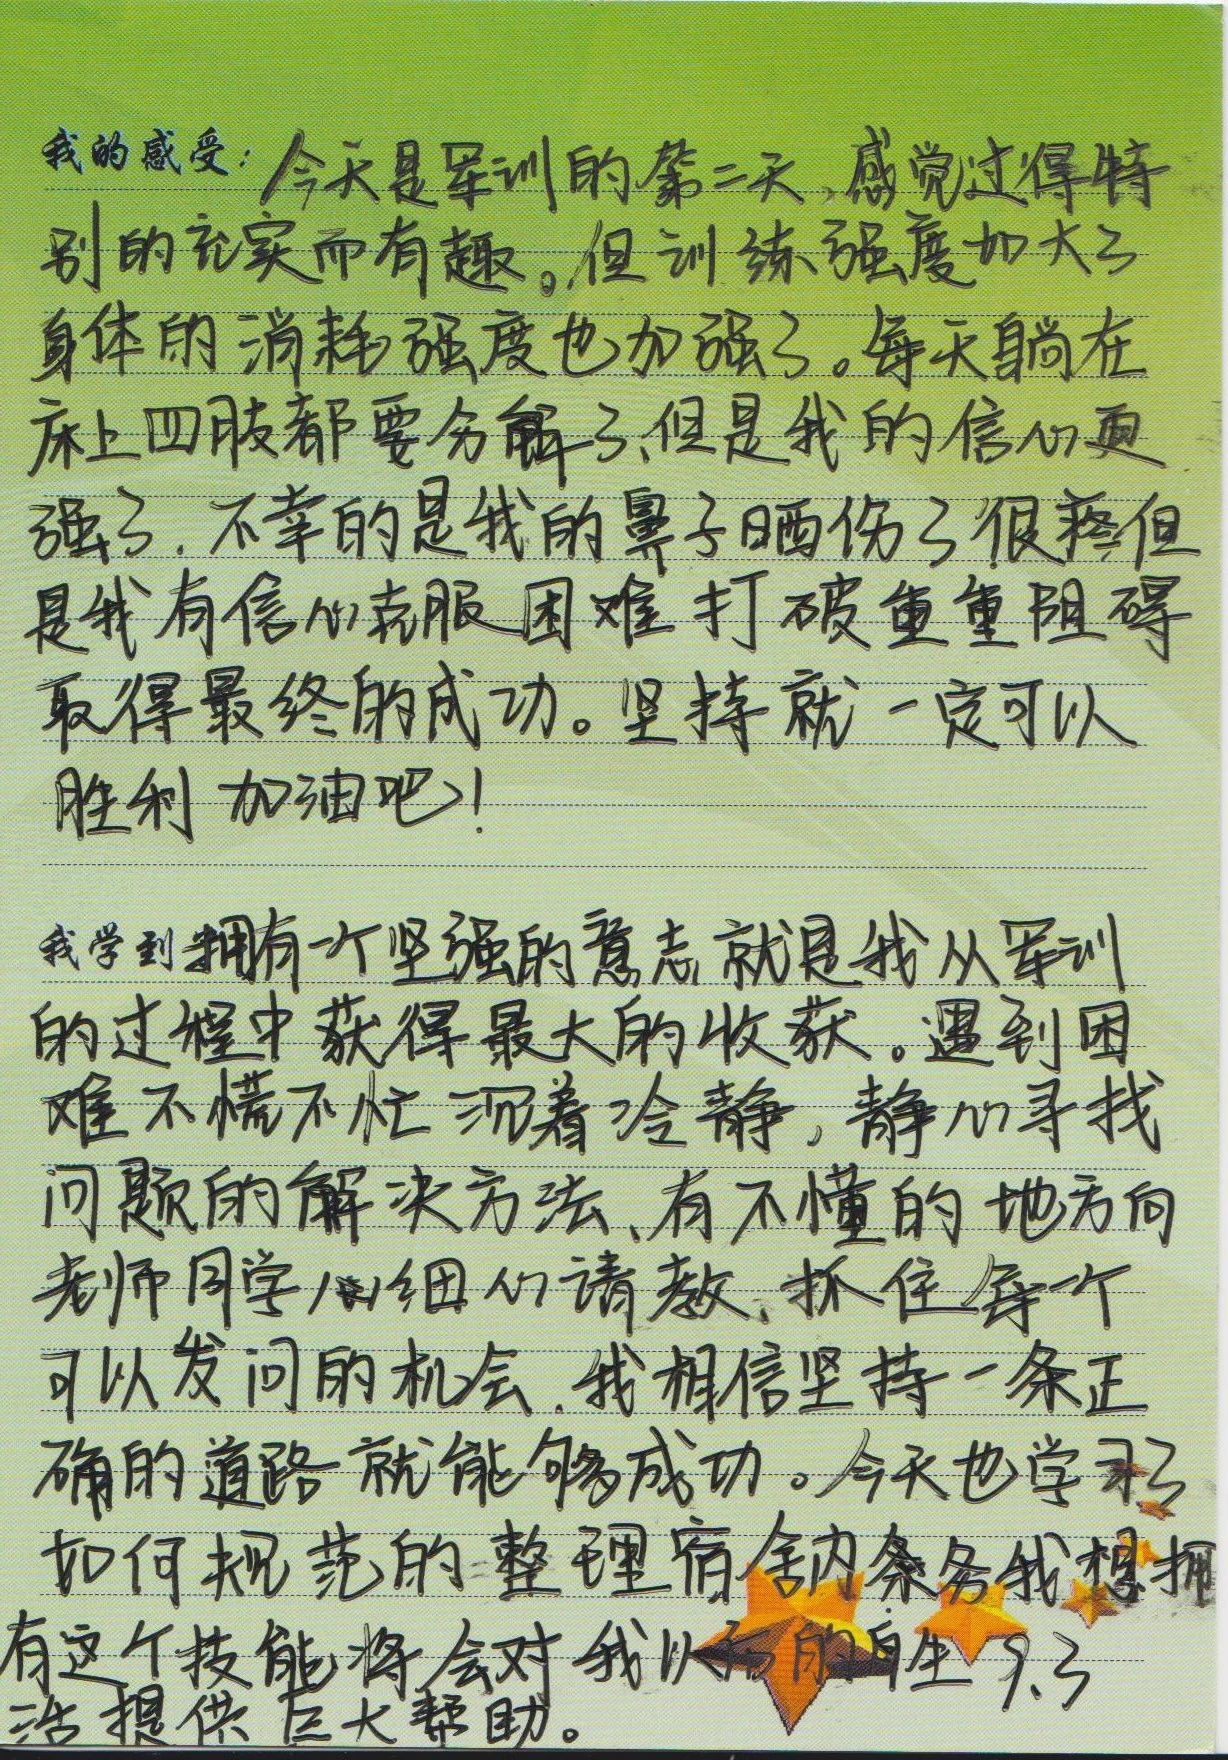 我的感受：今天是军训的第二天，感觉过得特
别的充实而有趣。但训练强度加大了
身体的消耗强度也加强了。每天躺在
床上四肢都要分解了，但是我的信心更
强了．不幸的是我的鼻子晒伤了很疼但
是我有信心克服困难打破重重阻碍
取得最终的成功。坚持就一定可以
胜利 加油吧！
我学到：拥有一个坚强的意志就是我从军训
的过程中获得最大的收获。遇到困
难不慌不忙沉着冷静，静心寻找
问题的解决方法、有不懂的地方向
老师同学细心请教、抓住每一个
可以发问的机会．我相信坚持一条正
确的道路就能够成功。今天也学习了
如何规范的整理宿舍内条务我想拥
有这个技能将会对我以后的自生 9.3
活提供巨大帮助。